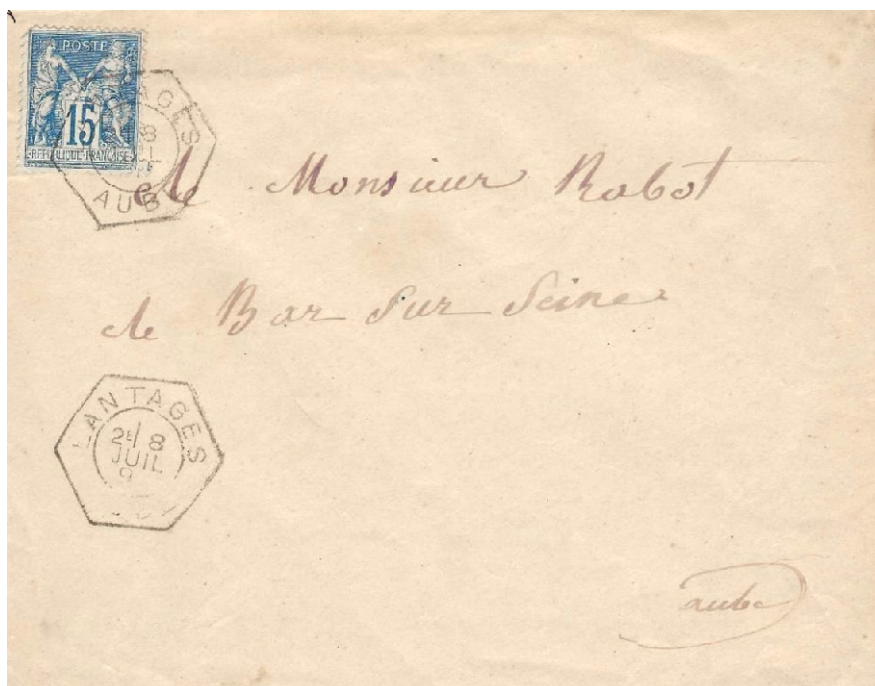 POSTE
15
REPUBLIQUE FRANÇAISE
AUB
de Monsieur Robot
de Bar Sur Seine
LANTAGES
2E 8
JUIL
9
aube